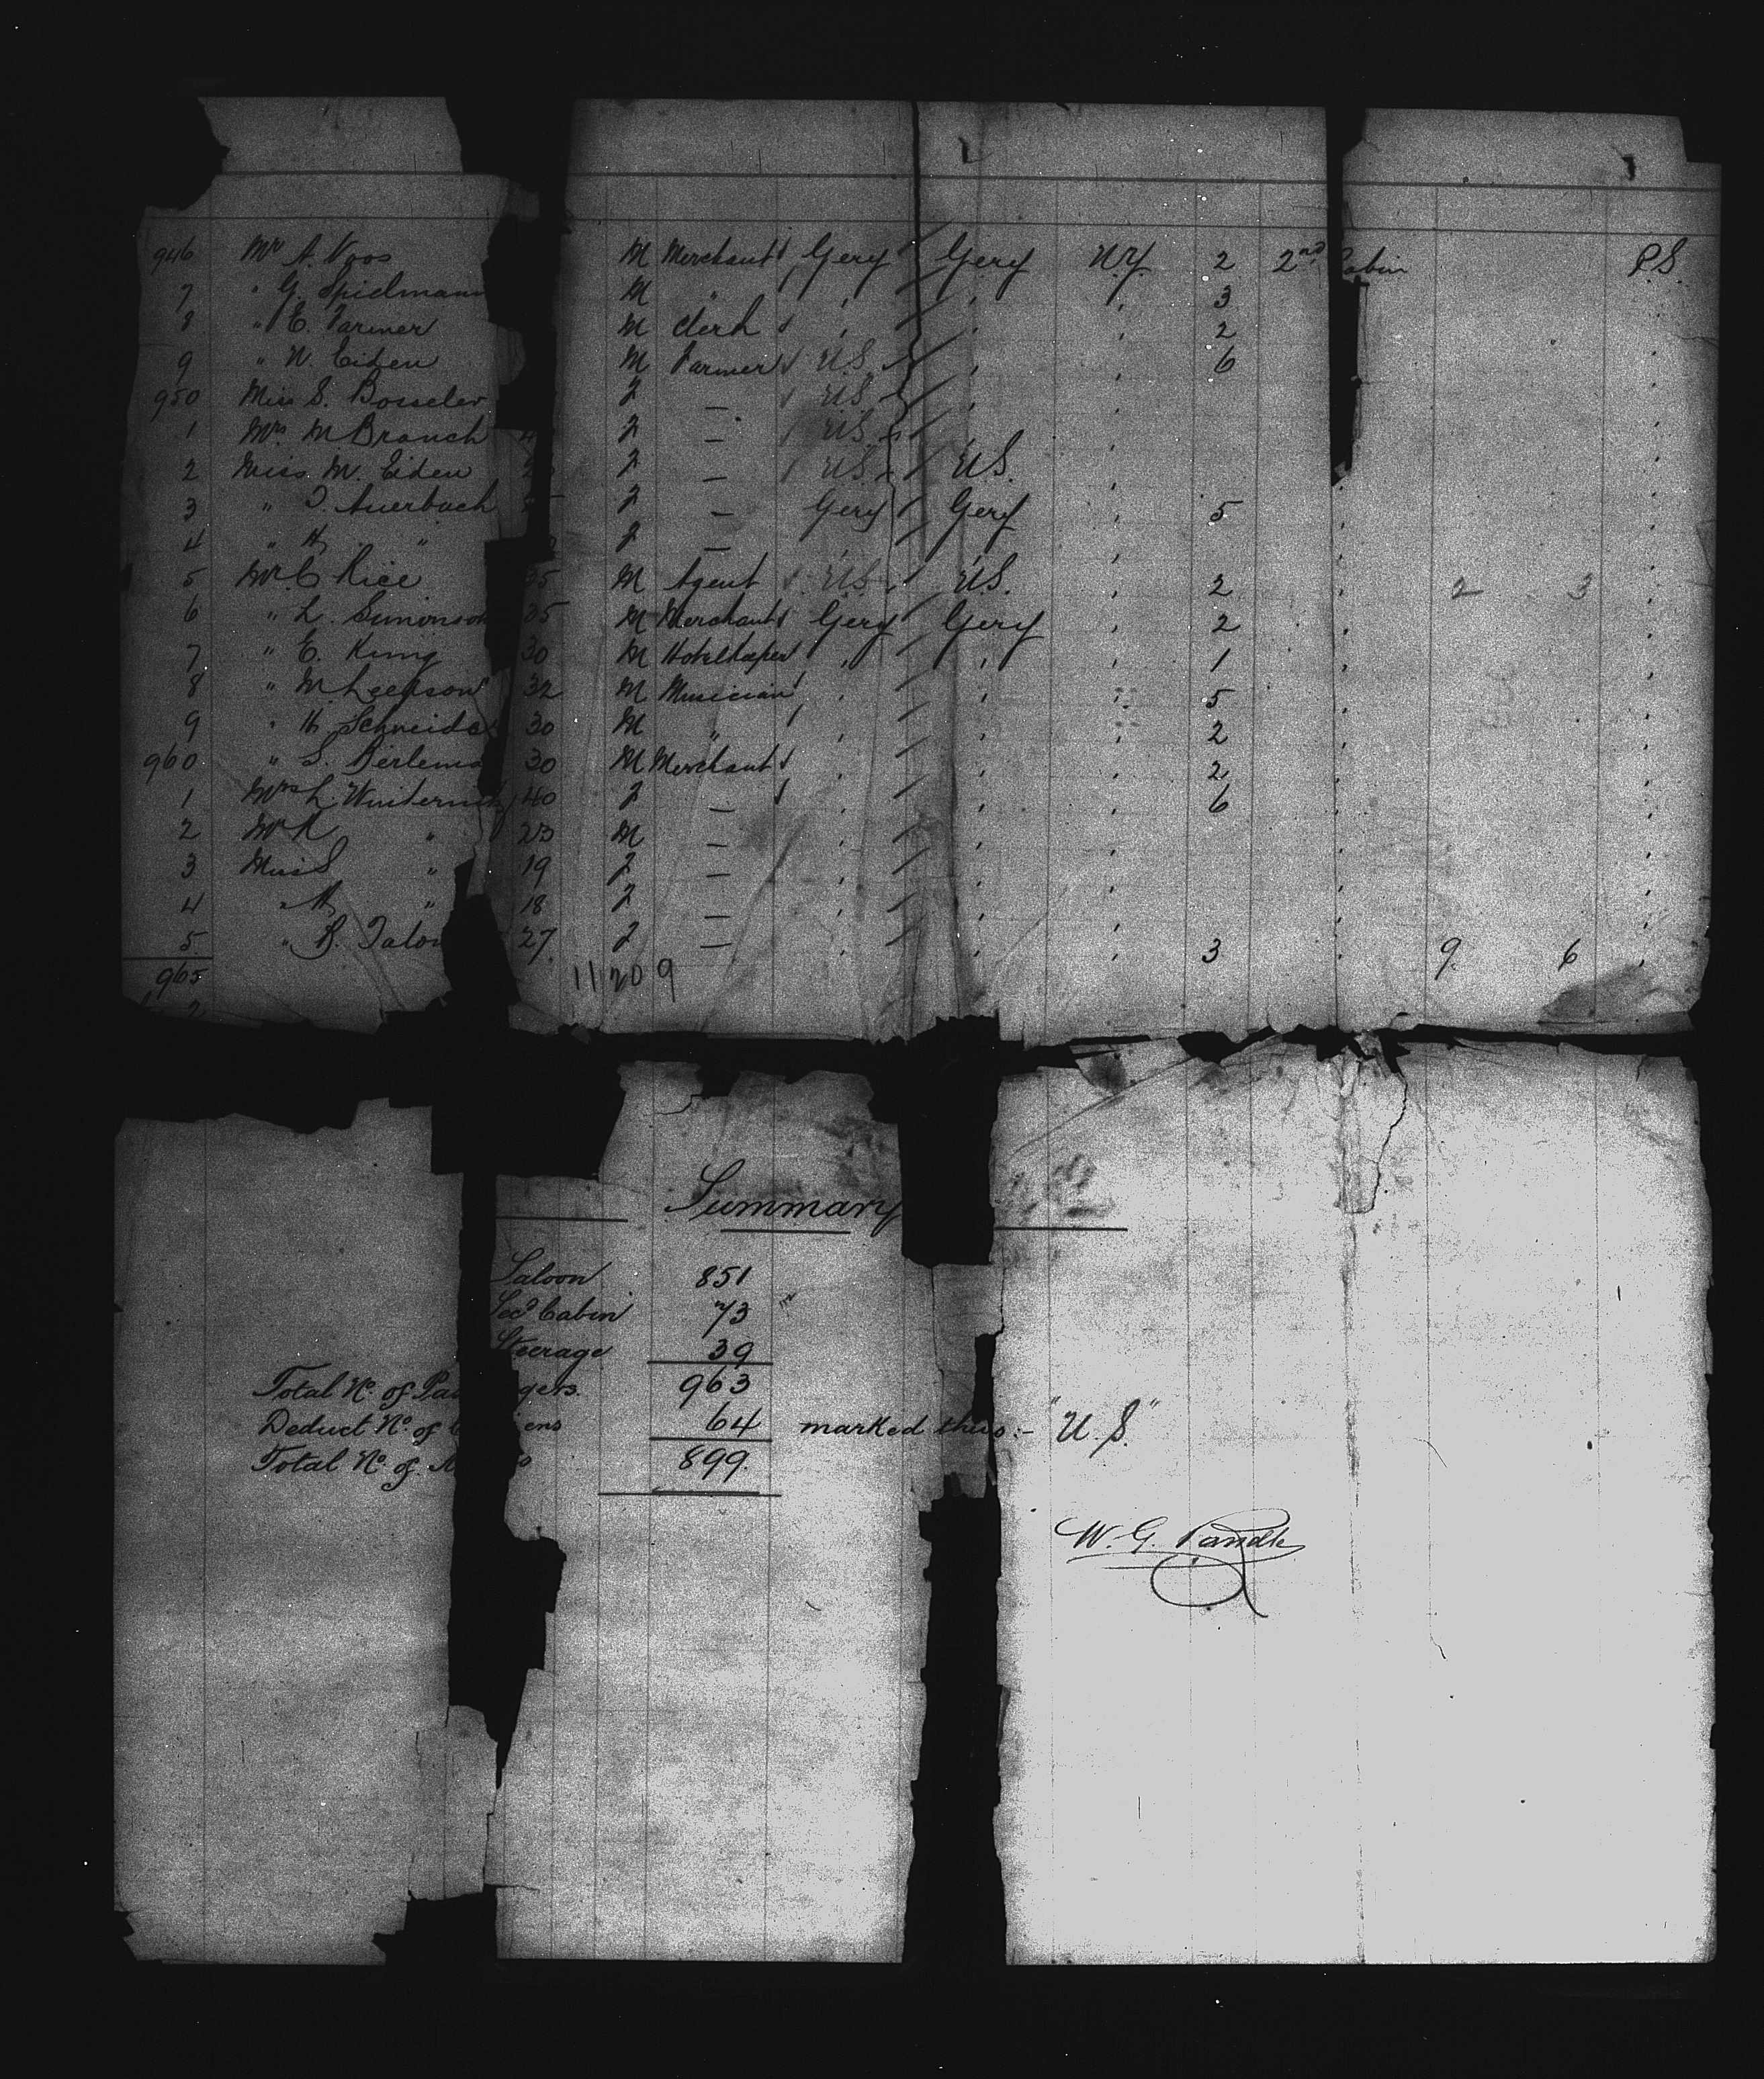 946 Mr A. Voos M Merchant Gery Gery N.Y. 2 2nd Cabin P.S.
7 " G. Spielmann M " " " " 3
8 " E. Farmer M Clerk " " " 2
9 " N. Eiden M Farmer U.S. " " 6
950 Miss S. Bosseler F — U.S. " "
1 Mrs M Branch 4 F — U.S. " "
2 Miss M. Eiden 2 F — U.S. U.S. "
3 " J. Auerbach F — Gery Gery " 5
4 " H " F — " " "
5 Mr C Rice 35 M Agent U.S. U.S. " 2 " 2 3
6 " L. Simonson 35 M Merchant Gery Gery " 2
7 " E. King 30 M Hotelkeeper " " " 1
8 " M. Leepson 32 M Musician " " " 5
9 " H Schneider 30 M " " " " 2
960 " S. Berlema 30 M Merchant " " " 2
1 Mrs L. Winternitz 40 F — " " " 6
2 Mr R " 23 M — " " "
3 Miss S " 19 F — " " "
4 " H " 18 F — " " "
5 " B. Talon 27 F — " " " 3 " 9 6
965
2
11209
Summary
Saloon 851
Secd Cabin 73
Steerage 39
Total No. of Pas gers. 963
Deduct No. of ens 64 marked thus:- "U.S."
Total No. of 899.
W. G. Randle